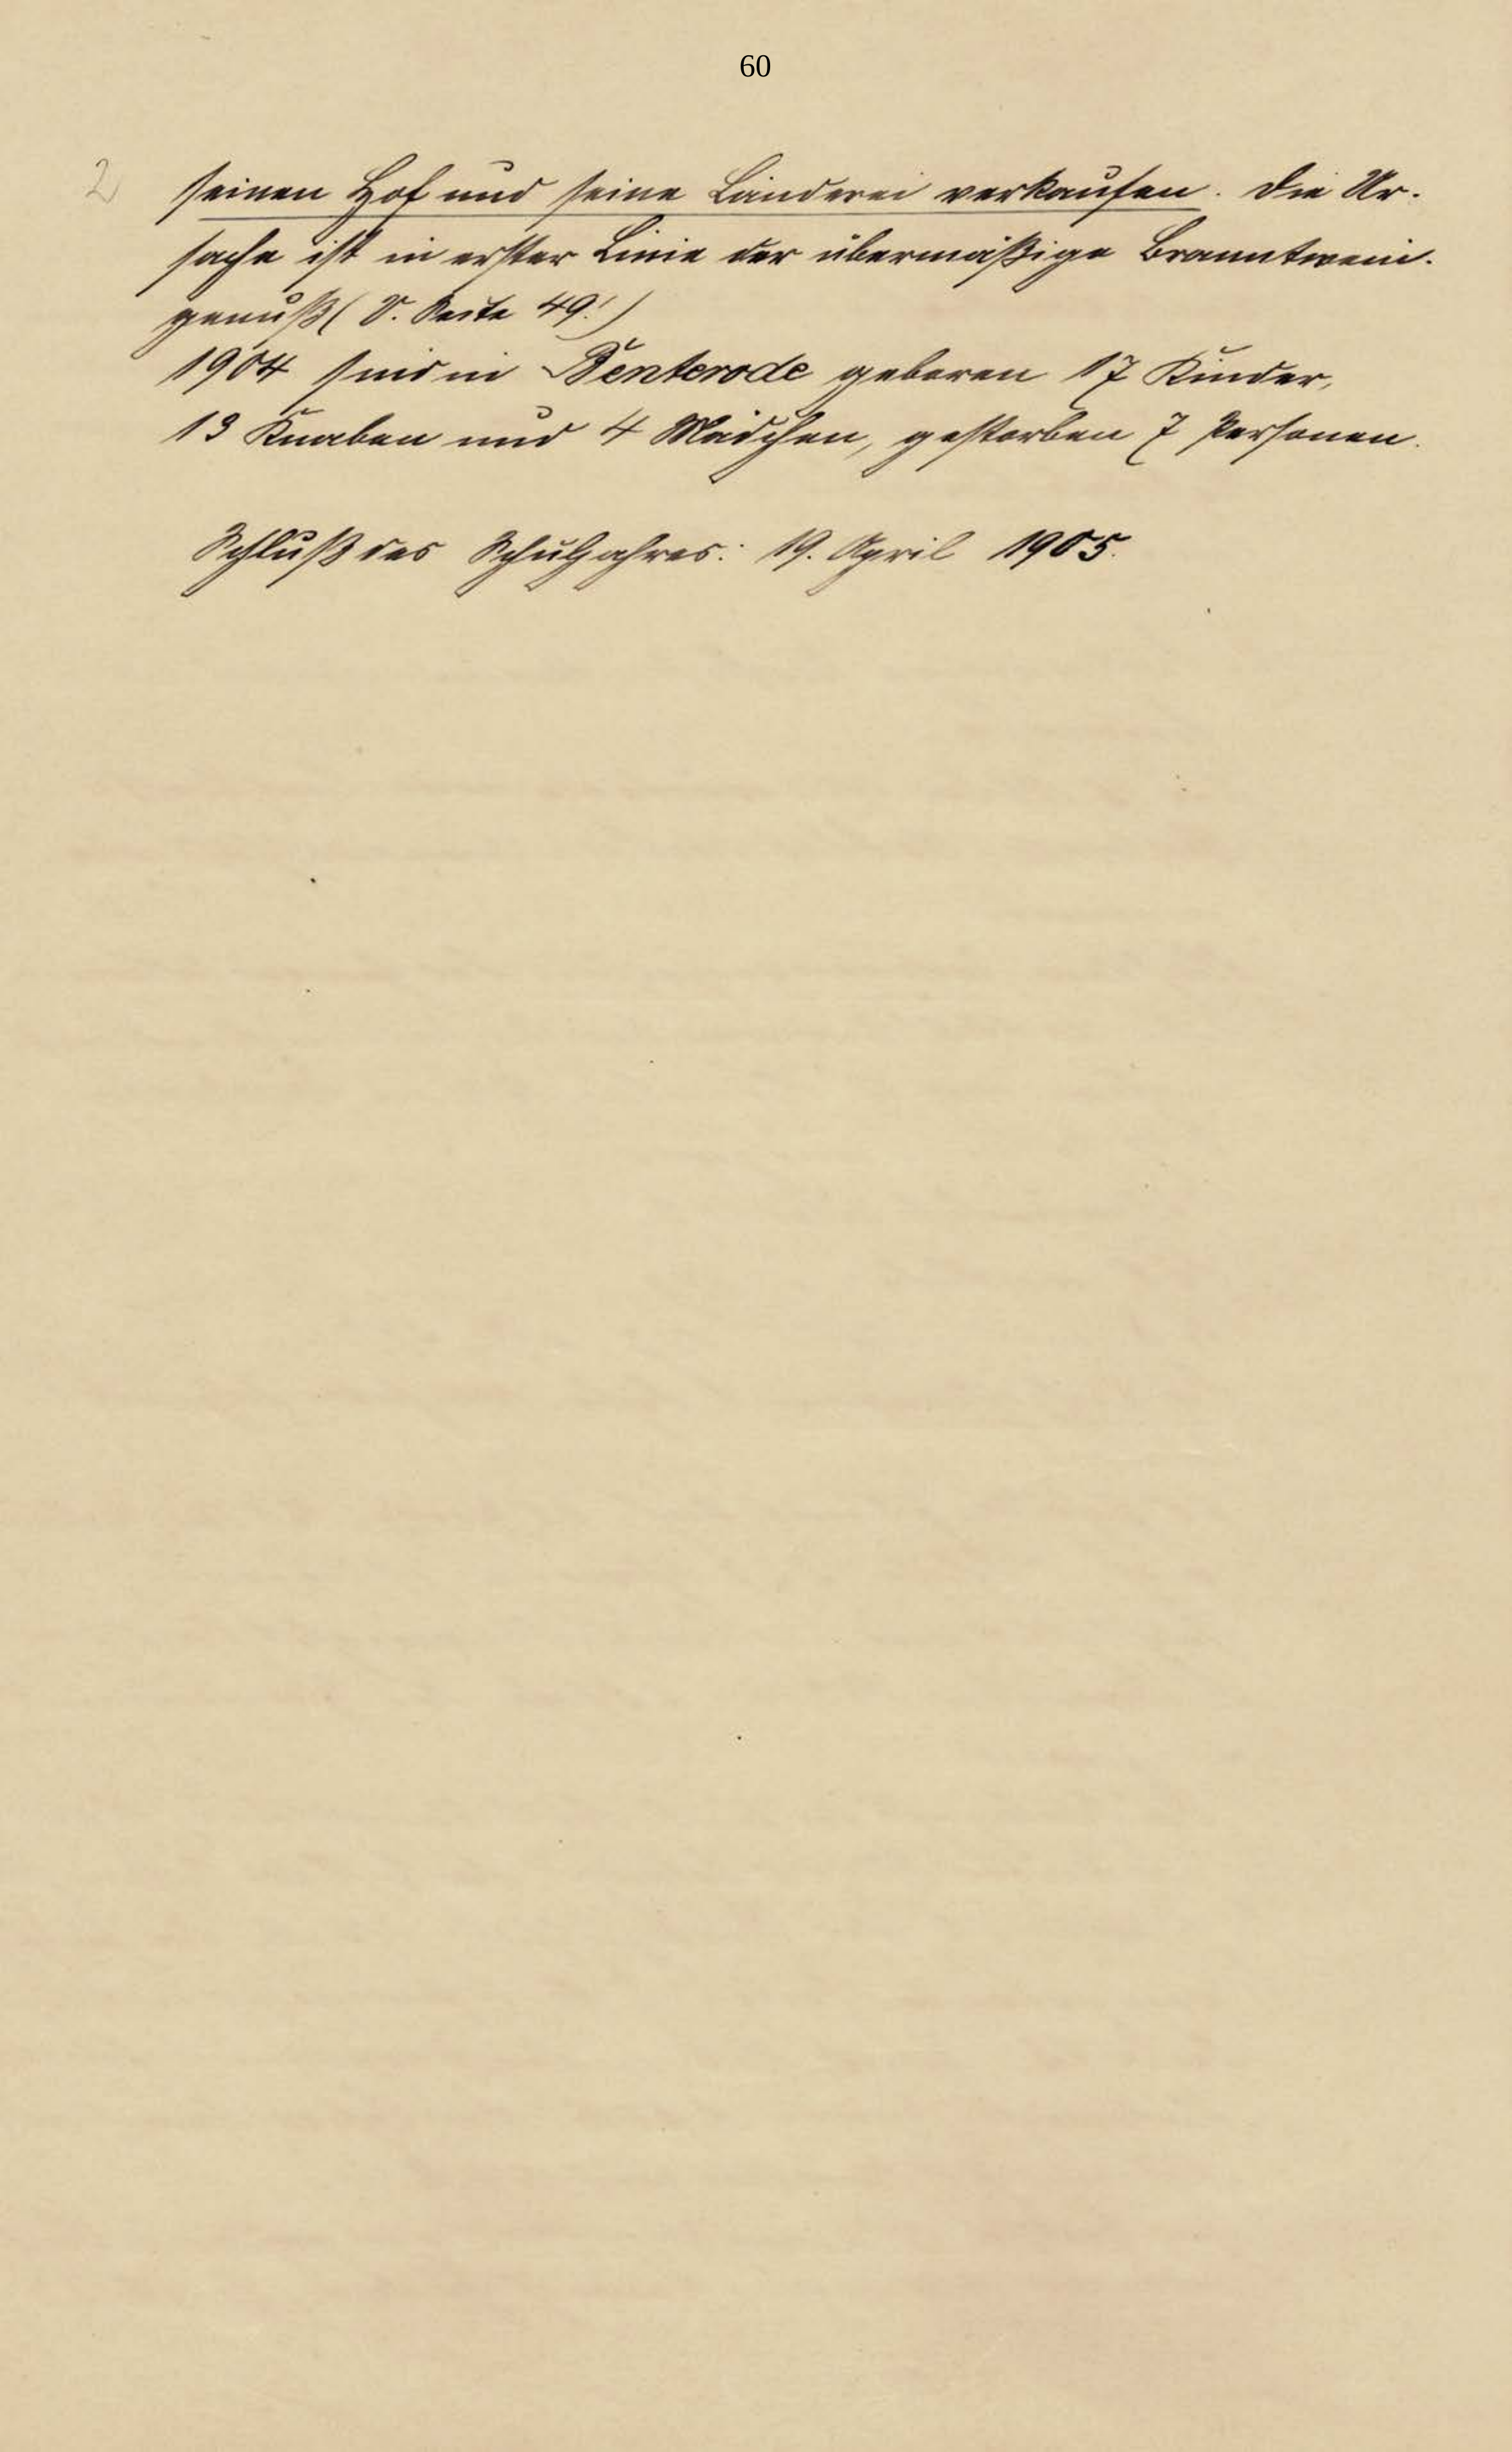 60
2 seinen Hof und seine Länderei verkaufen. Die Ur-
sache ist in erster Linie der übermäßige Branntwein-
genuß (S. Seite 49!)
1904 sind in Benterode geboren 17 Kinder,
13 Knaben und 4 Mädchen, gestorben 7 Personen.
Schluß des Schuljahres: 19. April 1905.